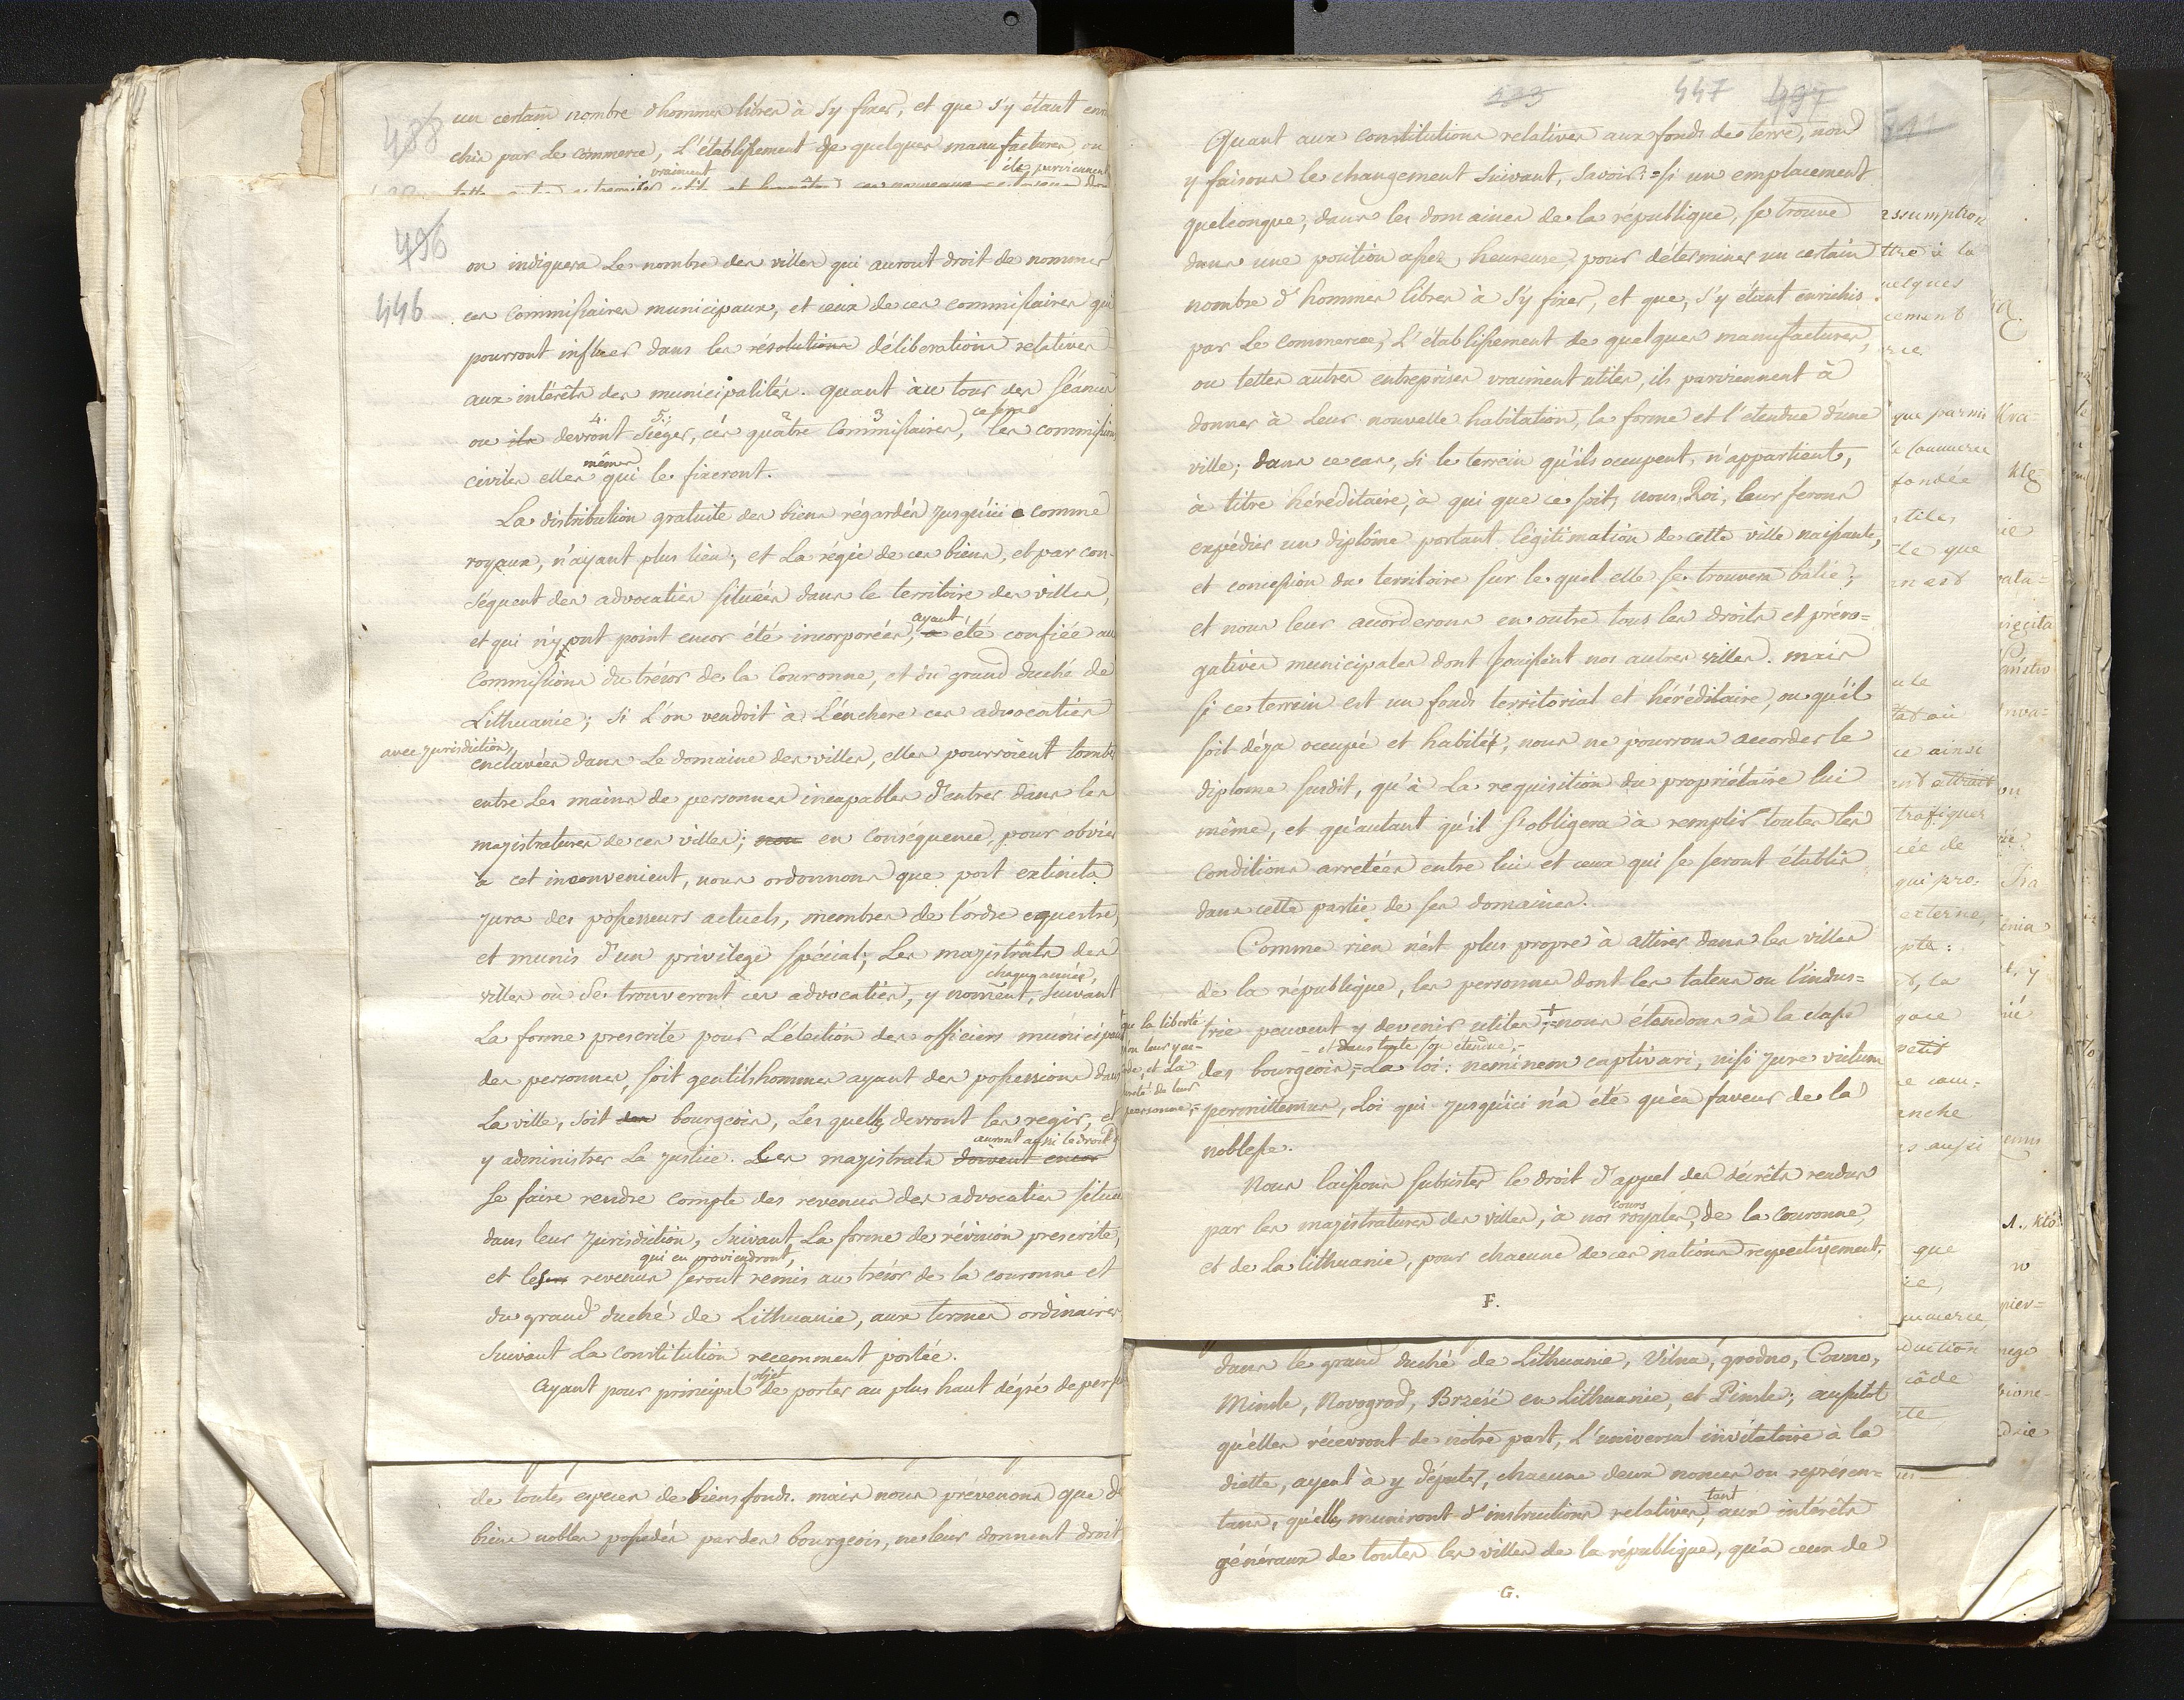 488
un certain nombre d'hommes libres à s'y fixer, et que s'y étant enri
chis par le commerce, L'établissement de quelques manufactures, ou
vraiment ils parviennent
496
446
on indiquera le nombre des villes qui auront droit de nommer
ces Commissaires municipaux, et ceux de ces commissaires qui
pourront influer dans les résolutions déliberations relatives
aux intérêts des municipalités. quant au tour des séances
4. 5. 2 3 ce sera
ou ils devront siéger, cès quâtre Commissaires, les commissions
mêmes
civiles elles qui le fixeront.
La distribution gratuite des biens régardés jusqu'ici comme
royaux, n'ayant plus lieu; et La régie de ces biens, et par con-
séquent des advocaties situées dans le territoire des villes,
ayant
et qui n'y ont point encor été incorporées, a été confiée au
Commissions du trésor de la Couronne, et du grand duché de
Lithuanie; si L'on vendoit à L'enchere ces advocaties
avec jurisdiction,
enclavées dans Le domaine des villes, elles pourroient tomber
entre Les mains de personnes incapables d'entrer dans les
magistratures de ces villes; nou en conséquence, pour obvier
à cet inconvenient, nous ordonnons que post extincta
jura des possesseurs actuels, membres de l'ordre equestre,
et munis d'un privilege spécial; Les magistrats des
chaque année,
villes où se trouveront ces advocaties, y noment, suivant
La forme prescrite pour L'élection des officiers municipaux
des personnes, soit gentilshommes ayant des possessions dans
La ville, soit des bourgeois, Les quells devront les regir, et
auront aussi le droit d
y administrer La justice. Les magistrats doivent encor
se faire rendre compte des revenus des advocaties situées
dans leur jurisdiction, suivant La forme de révision prescrite,
qui en proviendront,
et les revenus seront remis au trésor de la couronne et
du grand duché de Lithuanie, aux termes ordinaires
suivant La constitution recemment portée.
objet
Ayant pour principal de porter au plus haut dégré de perfe
de toutes especes de biens fonds. mais nous prévenons que d
biens nobles possedés par des bourgeois, ne leur donnent droit
533 447 497
Quant aux constitutions relatives aux fonds de terre, nous
y faisons le changement suivant, savoir: = si un emplacement
quelconque, dans les domaines de la république, se trouve
dans une position assez heureuse, pour déterminer un certain
nombre d'hommes libres à s'y fixer, et que, s'y étant enrichis
par Le commerce, L'établissement de quelques manufactures,
ou telles autres entreprises vraiment utiles, ils parviennent à
donner à Leur nouvelle habitation, la forme et l'etendue d'une
ville; dans ce cas, si le terrein qu'ils occupent, n'appartient,
à titre héréditaire, à qui que ce soit, nous, Roi, leur ferons
expédier un diplôme portant légitimation de cette ville naissante,
et concession du territoire sur le quel elle se trouvera bâtie;
et nous leur accorderons en outre tous les droits et préro=
gatives municipales dont jouissent nos autres villes. mais
si ce terrein est un fonds territorial et héréditaire, ou qu'il
soit déja occupé et habité, nous ne pourrons accorder le
diplome susdit, qu'à La requisition du propriétaire lui
même, et qu'autant qu'il s'obligera à remplir toutes les
conditions arretées entre lui et ceux qui se seront établis
dans cette partie de ses domaines.
Comme rien n'est plus propre à attirer dans les villes
de la république, les personnes dont les talens ou l'indus=
trie peuvent y devenir utiles + = nous étendons à la classe
que la liberté
de, et La
sureté de leur
personne, =
- et dans toute son etendue, -
des bourgeois, = La loi: neminem captivari, nisi jure victum
permittemus, Loi qui jusqu'ici n'a été qu'en faveur de la
noblesse.
Nous laissons subsister le droit d'appel des décrêts rendus
cours
par les magistratures des villes, à nos royales, de la couronne,
et de La lithuanie, pour chacune de ces nations respectivement.
F.
dans le grand duché de Lithuanie, Vilna, grodno, Covno,
Minsk, Novogrod, Brześć en Lithuanie, et Pinsk; aussitot
qu'elles récevront de notre part, L'universal invitatoire à la
diette, ayent à y députer, chacune deux nonces ou représen=
tant
tans, qu'ells muniront d'instructions relatives, aux intérêts
généraux de toutes les villes de la république, qu'à ceux de
G.
511
assumption
ttre à la
uelques
cement
que parmi
le commerce
fondée
que
ce ainsi
trafiquer
cée de
qui pro.
externe,
petit
aussi
que
duction
côde